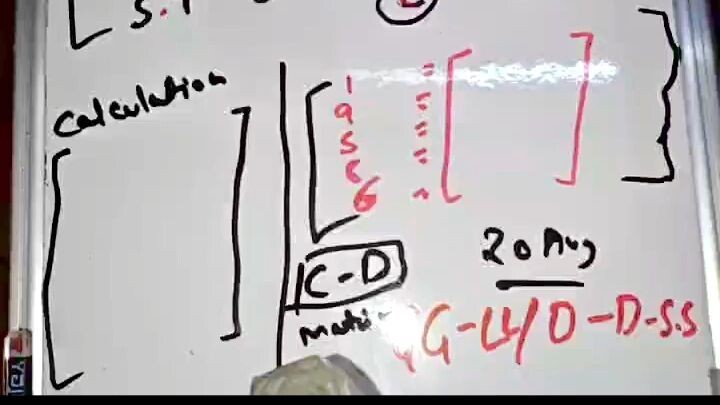 S.1
Calculation
1 =
9 =
5 =
8 =
6 =
C-D
20 Aug
G-LL/D-D-S.S